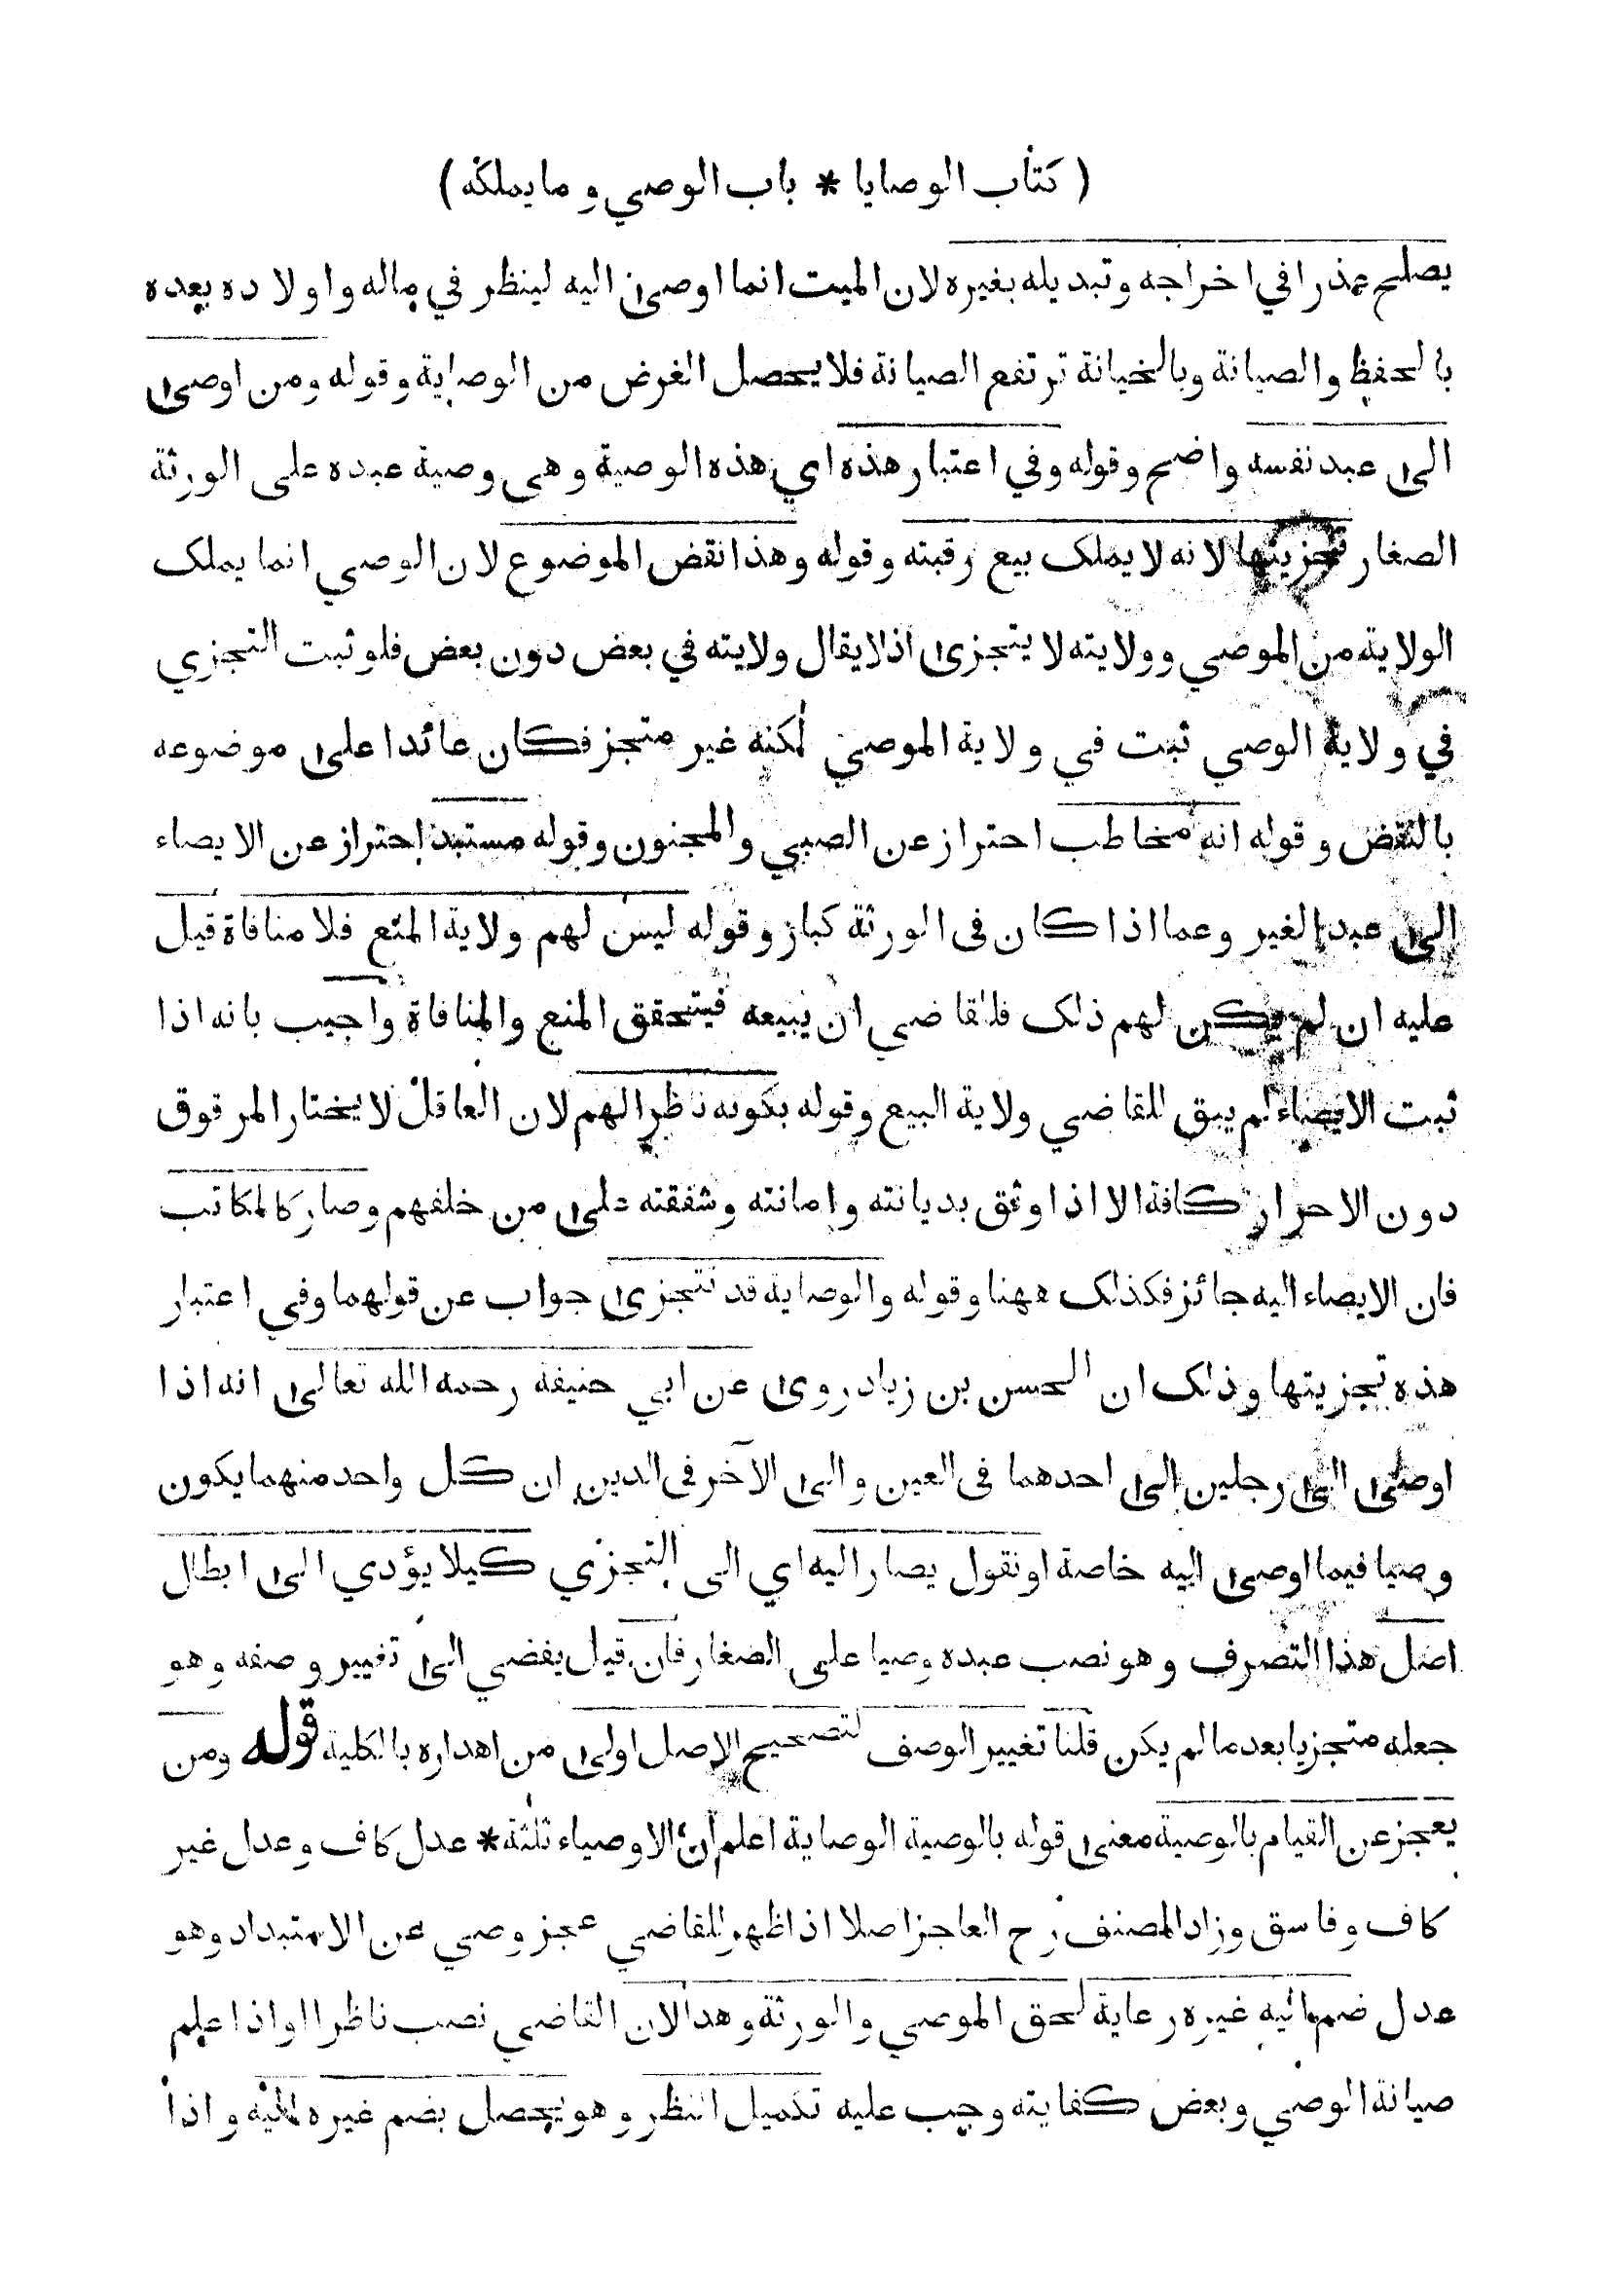 ( كتاب الوصايا * باب الوصي و ما يملكه )
يصلح عذرا في اخراجه و تبديله بغيره لان الميت انما اوصى اليه لينظر في ماله و اولاده بعده
بالحفظ و الصيانة وبالخيانة ترتفع الصيانة فلا يحصل الغرض من الوصاية و قوله ومن اوصى
الى عبد نفسه واضح و قوله وفي اعتبار هذه اي هذه الوصية و هى وصية عبده على الورثة
الصغار تجزيتها لانه لا يملك بيع رقبته و قوله وهذا نقض الموضوع لان الوصي انما يملك
الولاية من الموصي وولايته لا يتجزى اذ لا يقال ولايته في بعض دون بعض فلو ثبت التجزي
في ولاية الوصي ثبت في ولاية الموصي لكنه غير متجز فكان عائدا على موضوعه
بالنقض و قوله انه مخاطب احتراز عن الصبي و المجنون و قوله مستبد احتراز عن الايصاء
الى عبد الغير وعما اذا كان فى الورثة كبار و قوله ليس لهم ولاية المنع فلا منافاة قيل
عليه ان لم يكن لهم ذلك فللقاضي ان يبيعه فيتحقق المنع والمنافاة واجيب بانه اذا
ثبت الايصاء لم يبق للقاضي ولاية البيع وقوله بكونه ناظرا لهم لان العاقل لا يختار المرقوق
دون الاحرار كافة الا اذا وثق بديانته و امانته وشفقته على من خلفهم وصار كالمكاتب
فان الايصاء اليه جائز فكذلك ههنا و قوله والوصاية قد تتجزى جواب عن قولهما وفي اعتبار
هذه تجزيتها و ذلك ان الحسن بن زياد روى عن ابي حنيفة رحمه الله تعالى انه اذا
اوصى الى رجلين الى احدهما فى العين و الى الآخر فى الدين ان كل واحد منهما يكون
وصيا فيما اوصى اليه خاصة او نقول يصار اليه اي الى التجزي كيلا يؤدي الى ابطال
اصل هذا التصرف و هو نصب عبده وصيا على الصغار فان قيل يفضي الى تغيير وصفه و هو
جعله متجزيا بعد ما لم يكن قلنا تغيير الوصف لتصحيح الاصل اولى من اهداره بالكلية قوله ومن
يعجز عن القيام بالوصية معنى قوله بالوصية الوصاية اعلم ان الاوصياء ثلثة * عدل كاف و عدل غير
كاف و فاسق و زاد المصنف رح العاجز اصلا اذا ظهر للقاضي عجز وصي عن الاستبداد وهو
عدل ضم اليه غيره رعاية لحق الموصي والورثة وهذا لان القاضي نصب ناظرا و اذا علم
صيانة الوصي و بعض كفايته وجب عليه تكميل النظر و هو يحصل بضم غيره اليه و اذا